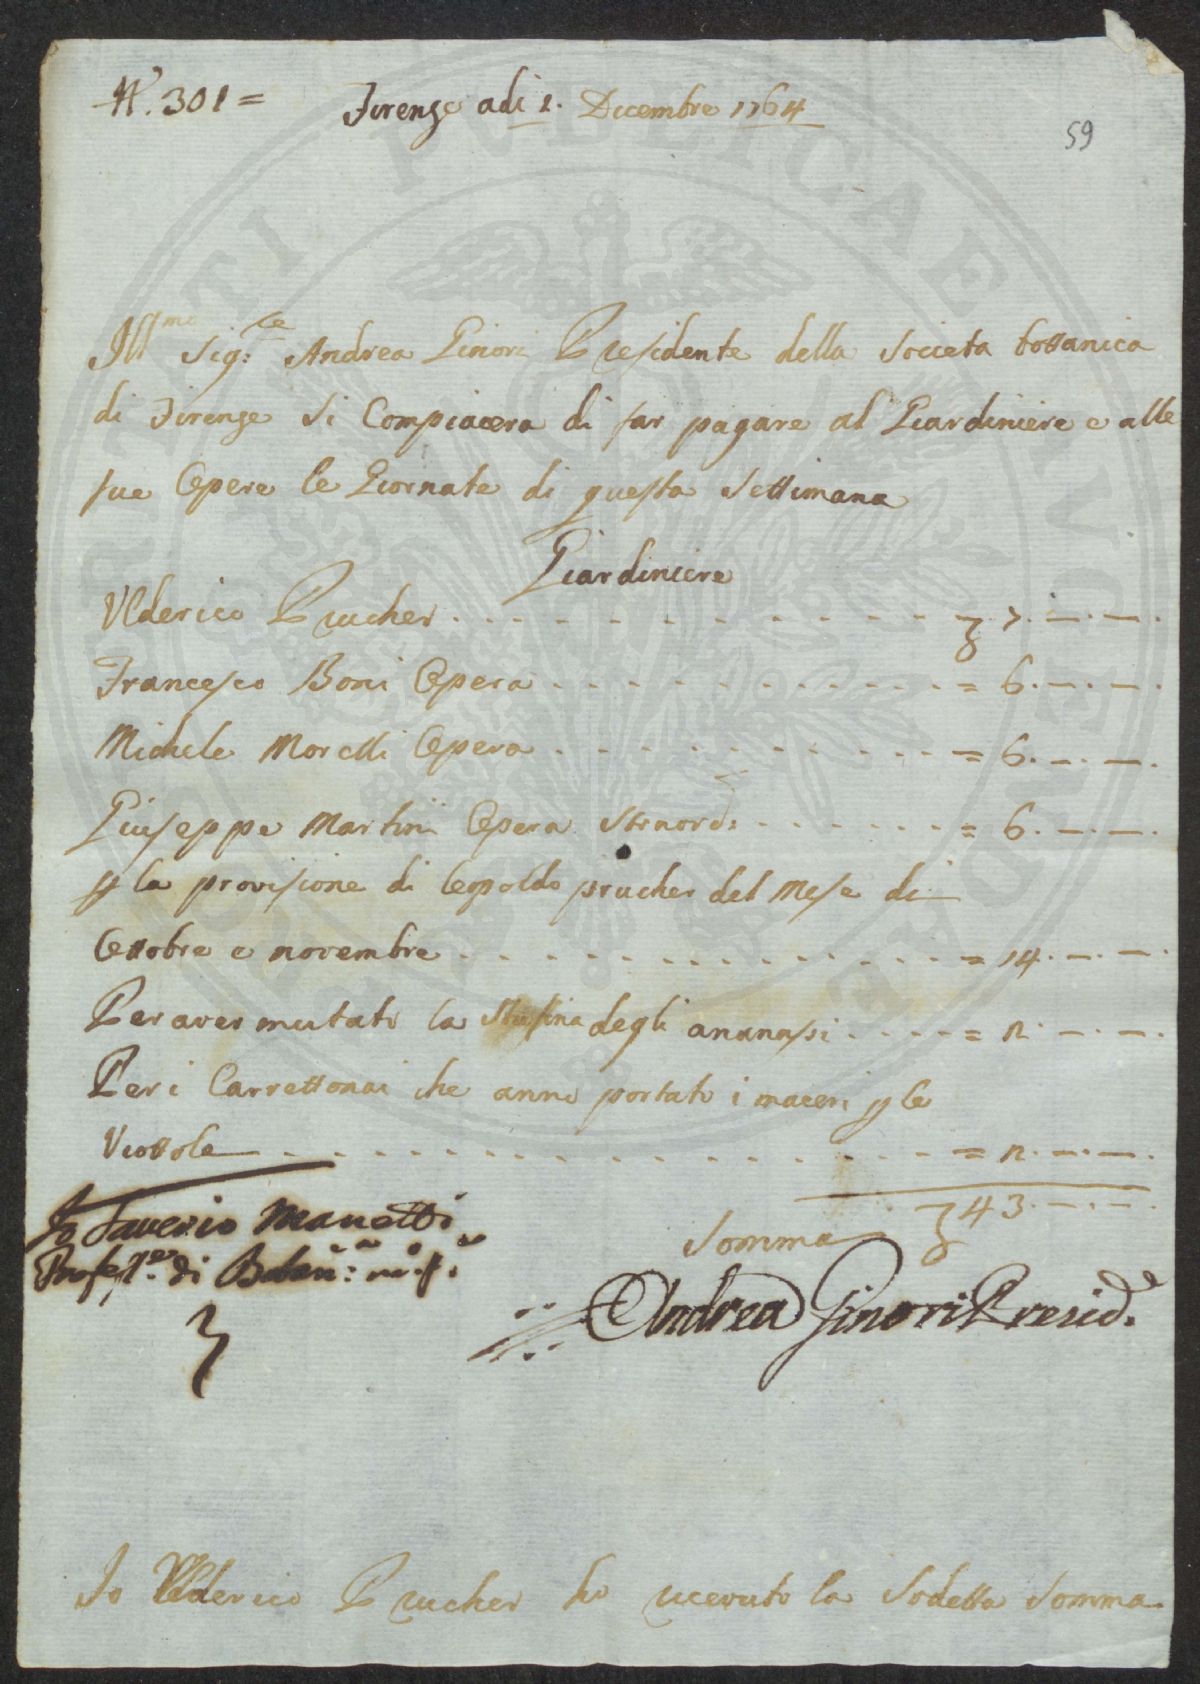 N.° 301 =
Firenze adi 1. Dicembre 1764
59
Ill.mo Sig.re Andrea Ginori Presidente della Societa bottanica
di Firenze si Compiacera di far pagare al Giardiniere e alle
sue Opere le Giornate di questa Settimana
Giardiniere
Ulderico Prucher . . . . . . . . . . . . 7. — . — .
Francesco Boni Opera . . . . . . . . . . . = 6. — . — .
Michele Morelli Opera . . . . . . . . . . . = 6. — . — .
Giuseppe Martini Opera Strnord: . . . . . . . = 6. — . — .
p la provisione di leopoldo prucher del Mese di
Ottobre e novembre . . . . . . . . . . . . . = 14. — . — .
Per aver mutato la Stufina degli ananassi . . . . = 2. — . — .
Per i Carrettonai che anno portato i maceri p le
Viottole . . . . . . . . . . . . . . . . . = 2. — . — .
Somma 43. — . — .
Io Saverio Manetti
Profess.re di Botan: m. p.
Andrea Ginori Presid.e
Io Ulderico Prucher ho ricevuto la Sodetta Somma.